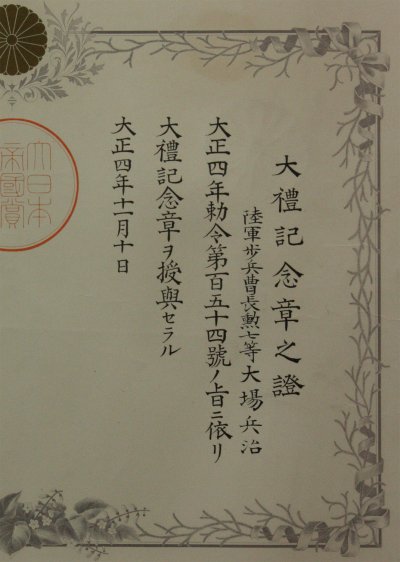 大禮記念章之證
陸軍步兵曹長勲七等大場兵治
大正四年勅令第百五十四號ノ旨ニ依リ
大禮記念章ヲ授與セラル
大正四年十一月十日
大日本
帝國賞